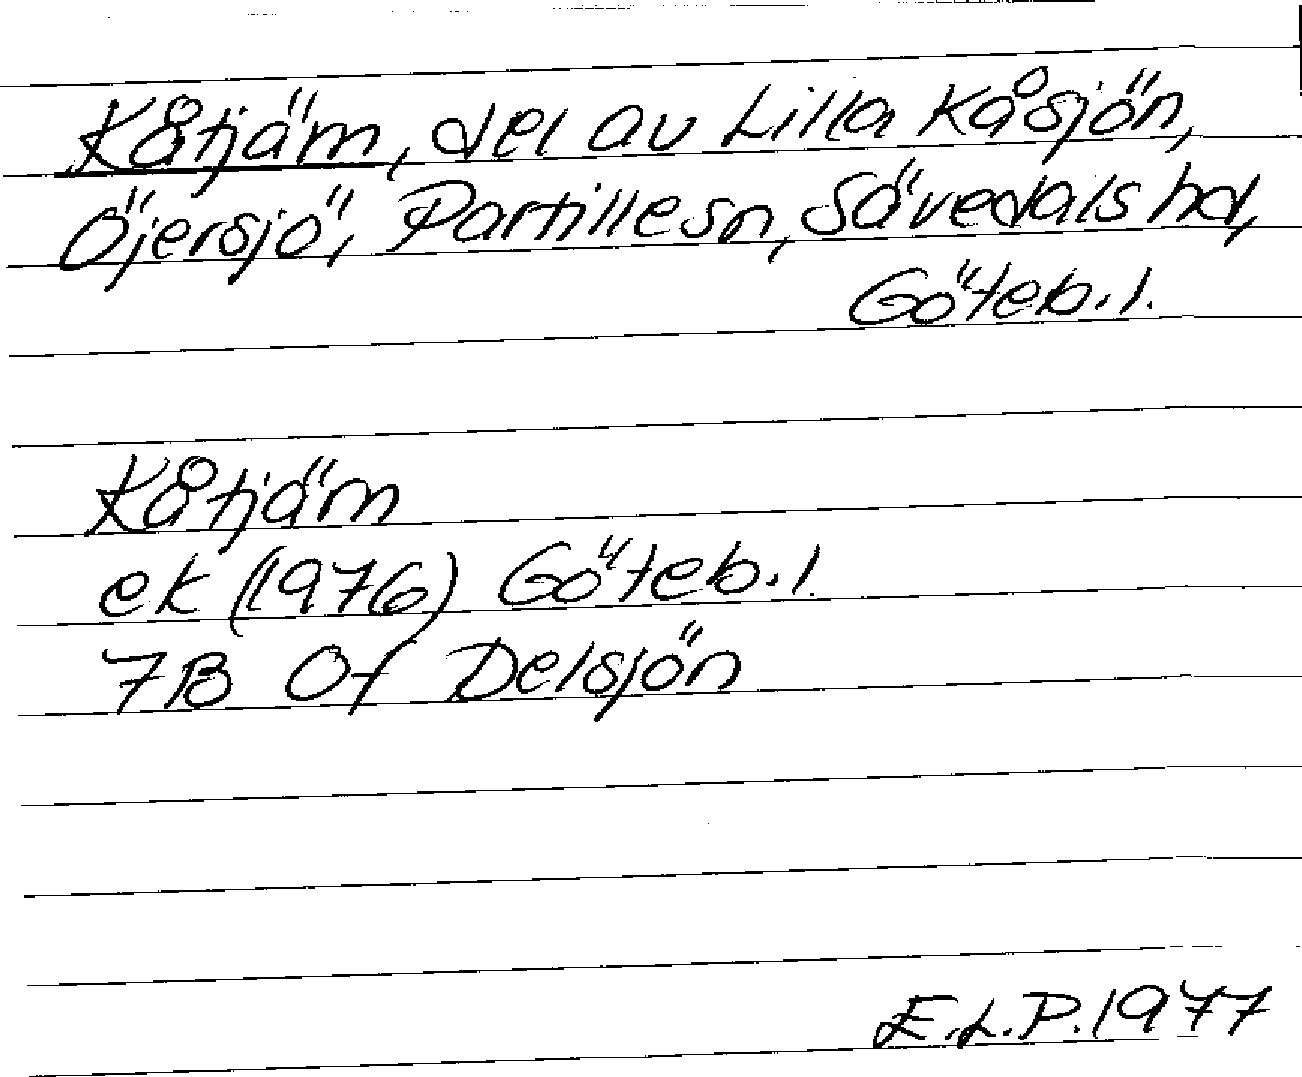 Kåtjärn, del av Lilla Kåsjön,
Öjersjö, Partille sn, Sävedals hd,
Göteb. l.
Kåtjärn
ek (1976) Göteb. l.
7B 0f Delsjön
E.L.P. 1977